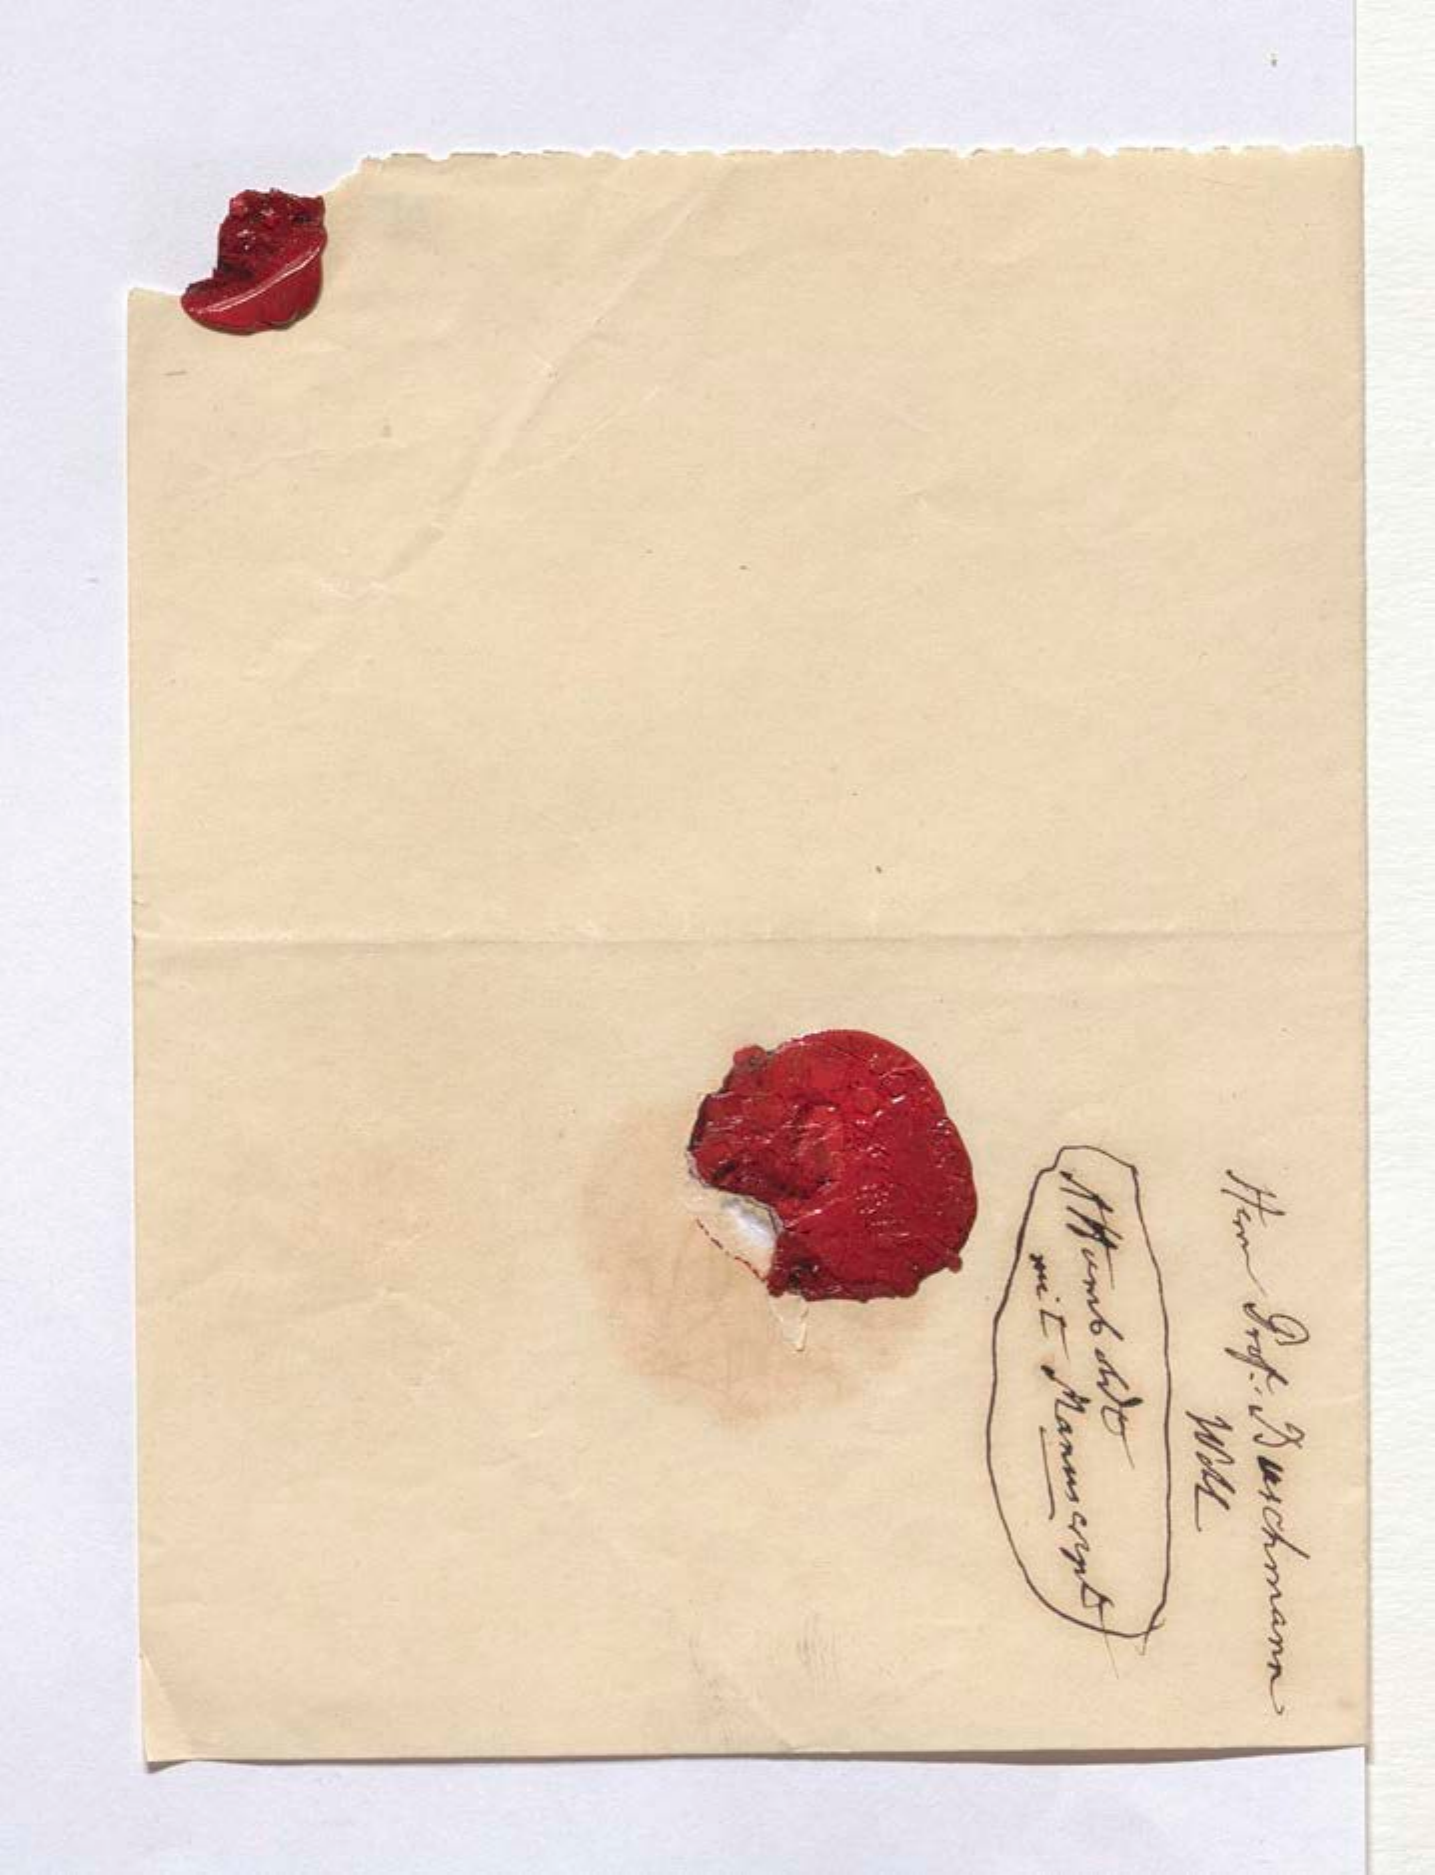 Herrn Prof. Buschmann
Wohl
AHumboldt
mit Manuscript